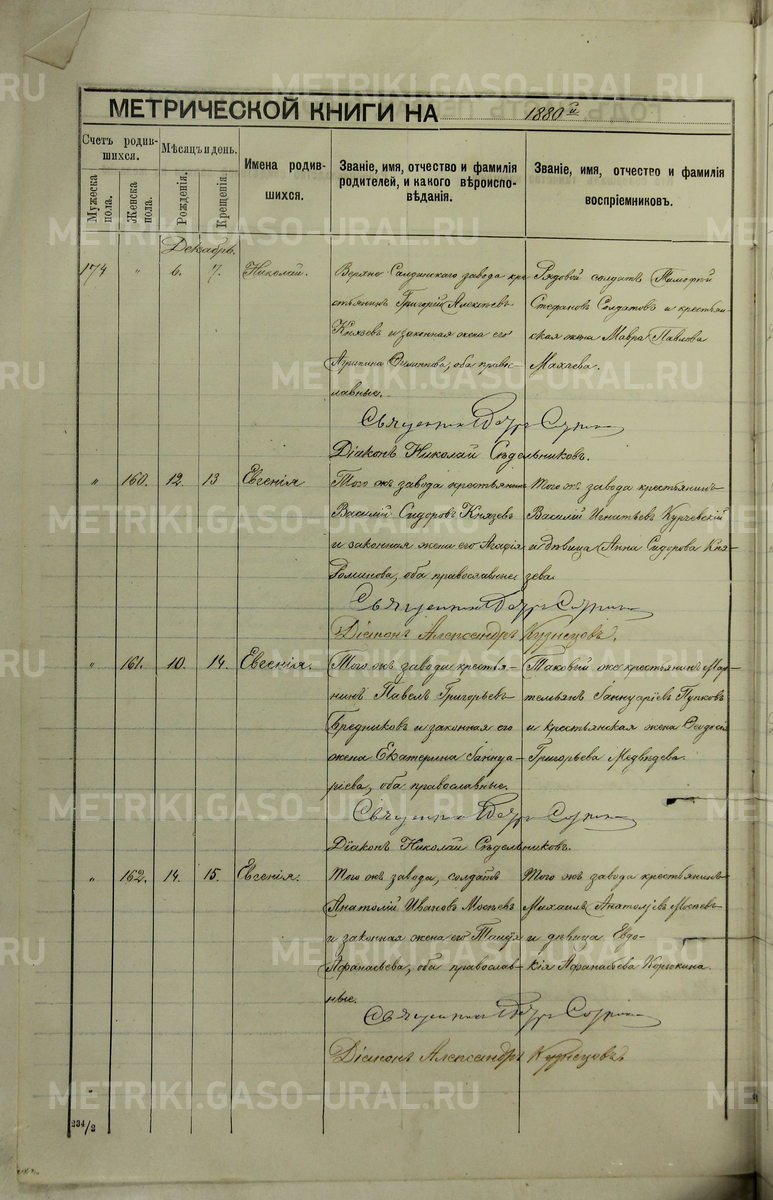 METRIKI.GASO-URAL.RU
МЕТРИЧЕСКОЙ КНИГИ НА 1880 й
Счетъ родив-
шихся.
Мѣсяцъ и день.
Мужеска пола.
Женска пола.
Рожденія.
Крещенія.
Имена родив-
шихся.
Званіе, имя, отчество и фамилія
родителей, и какого вѣроиспо-
вѣданія.
Званіе, имя, отчество и фамилія
воспріемниковъ.
Декабрь.
174 " 6. 7. Николай.
Верхне Салдинскаго завода кре
стьянинъ Григорій Алексѣевъ
Князевъ и законная жена его
Агрипина, оба право-
славные.
Рядовой солдатъ Тимофей
Стефановъ Солдатовъ и крестьян-
ская жена Мавра Павлова
Махаева.
Священник
Діаконъ Николай Сѣдельниковъ.
" 160. 12. 13 Евгенія
Того жъ завода крестьянинъ
Василій Сидоровъ Князевъ
и законная жена его Агафія
оба православные
Того жъ завода крестьянинъ
Василій Игнатьевъ
и дѣвица Анна Сидорова Кня-
зева.
Священник
Діаконъ Александръ Кузнецовъ.
" 161. 10. 14. Евгенія.
Того жъ завода крестья-
нинъ Павелъ Григорьевъ
Бредниковъ и законная его
жена Екатерина Іаннуа-
ріева, оба православные.
Таковый же крестьянинъ Мар-
тельянъ Іаннуаріевъ Пупковъ
и крестьянская жена Ѳеодосія
Григорьева Медвѣдева.
Священник
Діаконъ Николай Сѣдельниковъ.
" 162. 14. 15. Евгенія.
Того жъ завода, солдатъ
Анатолій Ивановъ Мосѣевъ
и законная жена его
Афанасьева, оба православ-
ные.
Того жъ завода крестьянинъ
Михаилъ Анатоліевъ Мосѣевъ
и дѣвица Евдо-
кія Афанасьева
Священник
Діаконъ Александръ Кузнецовъ
234/2